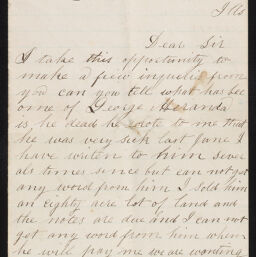 Ills
Dear Sir
I take this opportunity to
make a few inqueries from
you can you tell what has bec
ome of George Meranda
is he dead he wrote to me that
he was very sick last June I
have writen to him sever
als times since but can not get
any word from him I sold him
an eighty acre lot of land and
the notes are due and I can not
get any word from him when
he will pay me we are wanting